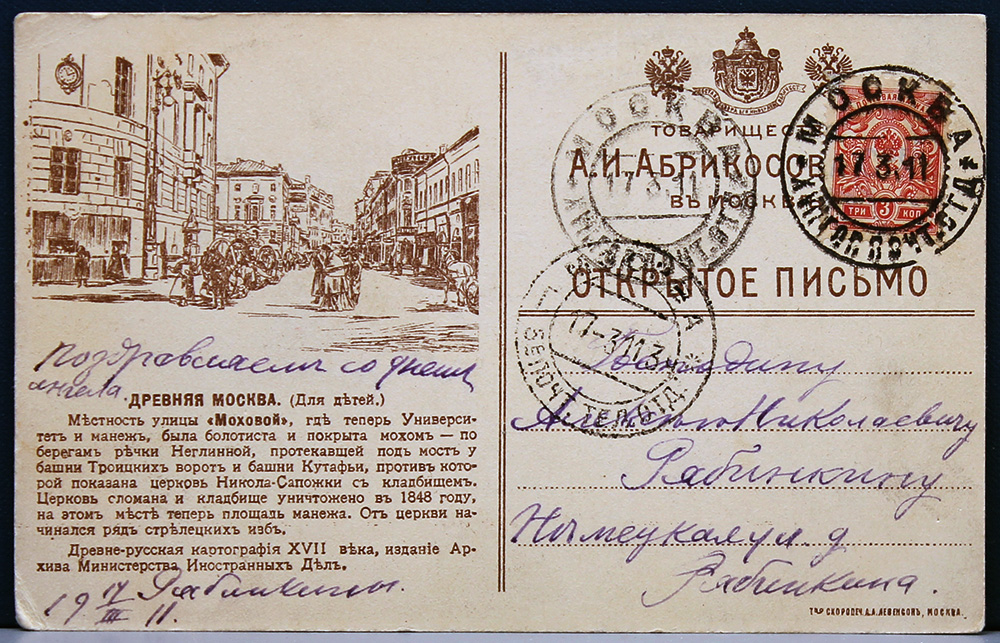 Поздравляемъ со днемъ
ангела.
ДРЕВНЯЯ МОСКВА. (Для дѣтей.)
Мѣстность улицы «Моховой», гдѣ теперь Универси-
тетъ и манежъ, была болотиста и покрыта мохомъ — по
берегамъ рѣчки Неглинной, протекавшей подъ мостъ у
башни Троицкихъ воротъ и башни Кутафьи, противъ кото-
рой показана церковь Никола-Сапожки съ кладбищемъ.
Церковь сломана и кладбище уничтожено въ 1848 году,
на этомъ мѣстѣ теперь площадь манежа. Отъ церкви на-
чинался рядъ стрѣлецкихъ избъ.
Древне-русская картографія XVII вѣка, изданіе Ар-
хива Министерства Иностранныхъ Дѣлъ.
19 17/III 11. Рябинкины.
ТОВАРИЩЕС
А.И.АБРИКОСОВ
ВЪ МОСКВ
ОТКРЫТОЕ ПИСЬМО
МОСКВА
17.3.11
МОСКВА
17.3.11
ТРИ 3 КОП
17-3 11
ТЕЛ.ОТД.
Николаевичу
Рябинкину
Нѣмецкая ул. д
Рябинкина.
Т-во СКОРОПЕЧ. А.А.ЛЕВЕНСОНЪ, МОСКВА.